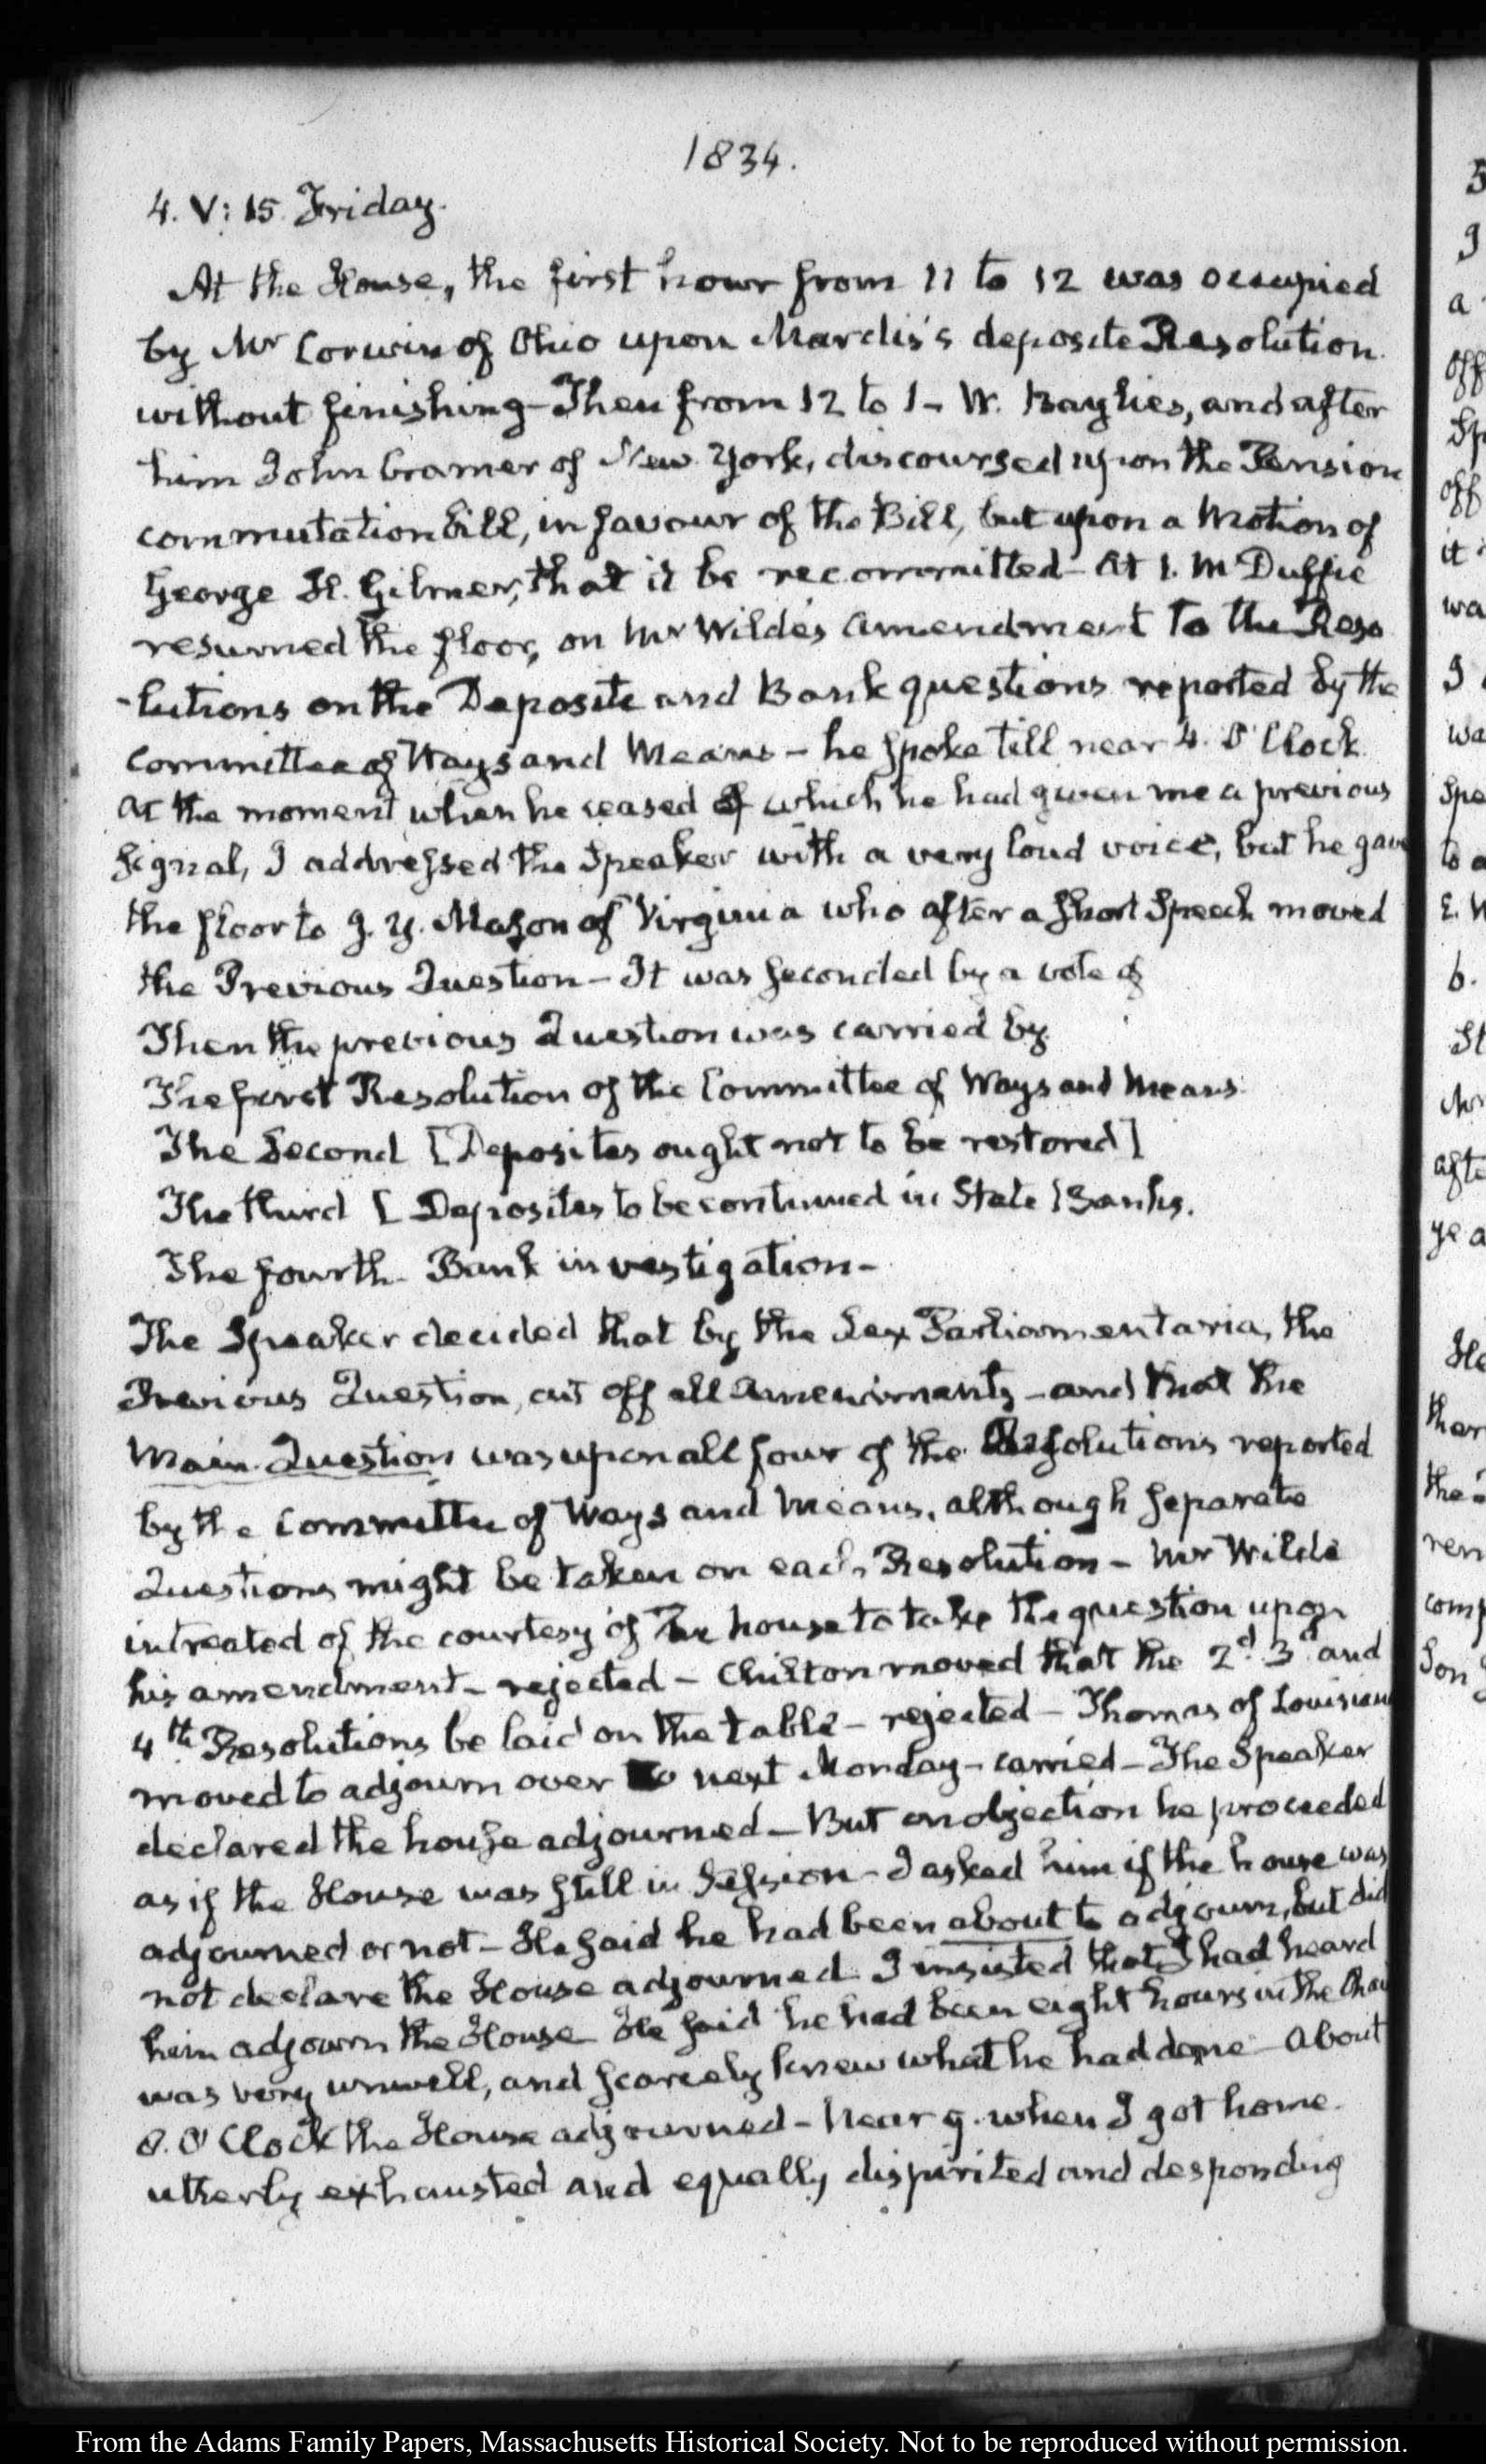 1834.
4. V: 15. Friday.
At the House, the first hour from 11 to 12 was occupied
by Mr Corwin of Ohio upon Mardis's deposite Resolution.
without finishing- Then from 12 to 1- W. Baylies, and after
him John Cramer of New York, discoursed upon the Pension
commutation bill, in favour of the Bill, but upon a Motion of
George H. Gilmer, that it be recommitted- At 1. McDuffie
resumed the floor, on Mr Wilde's amendment to the Reso
-lutions on the Deposite and Bank questions reported by the
Committee of Ways and Means- he spoke till near 4. O'Clock
At the moment when he ceased of which he had given me a previous
signal, I addressed the Speaker with a very loud voice, but he gave
the floor to J. Y. Mason of Virginia who after a short Speech moved
the Previous Question- It was seconded by a vote of
Then the previous Question was carried by
The first Resolution of the Committee of Ways and Means.
The Second [Deposites ought not to be restored]
The third [Deposites to be continued in State Banks.
The fourth- Bank investigation-
The Speaker decided that by the Lex Parliamentaria, the
Previous Question, cut off all amendments- and that the
Main Question was upon all four of the Resolutions reported
by the Committee of Ways and Means, although separate
Questions might be taken on each Resolution- Mr Wilde
intreated of the courtesy of the house to take the question upon
his amendment- rejected- Chilton moved that the 2d. 3d and
4th Resolutions be laid on the table- rejected- Thomas of Louisiana
moved to adjourn over to next Monday- carried- The Speaker
declared the house adjourned- But on objection he proceeded
as if the House was still in Session- I asked him if the house was
adjourned or not- He said he had been about to adjourn, but did
not declare the House adjourned. I insisted that I had heard
him adjourn the House He said he had been eight hours in the Chair
was very unwell, and scarcely knew what he had done- About
8. O'Clock the House adjourned- Near 9. when I got home.
utterly exhausted and equally dispirited and desponding
From the Adams Family Papers, Massachusetts Historical Society. Not to be reproduced without permission.